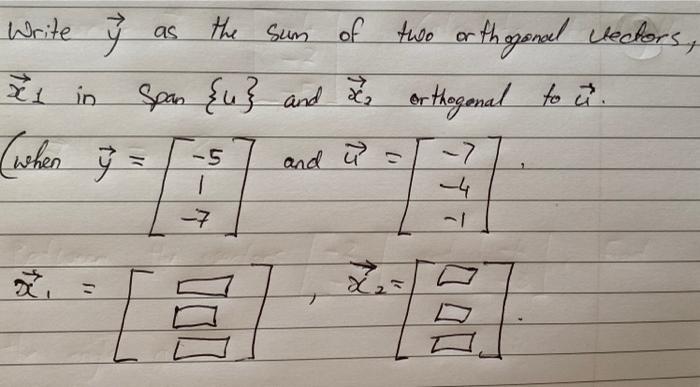 Write y⃗ as the sum of two orthogonal vectors,
x⃗1 in Span {u} and x⃗2 orthogonal to u⃗.
(when y⃗ = [-5 1 -7] and u⃗ = [-7 -4 -1],
x⃗1 = [▭ ▭ ▭], x⃗2 = [▭ ▭ ▭].